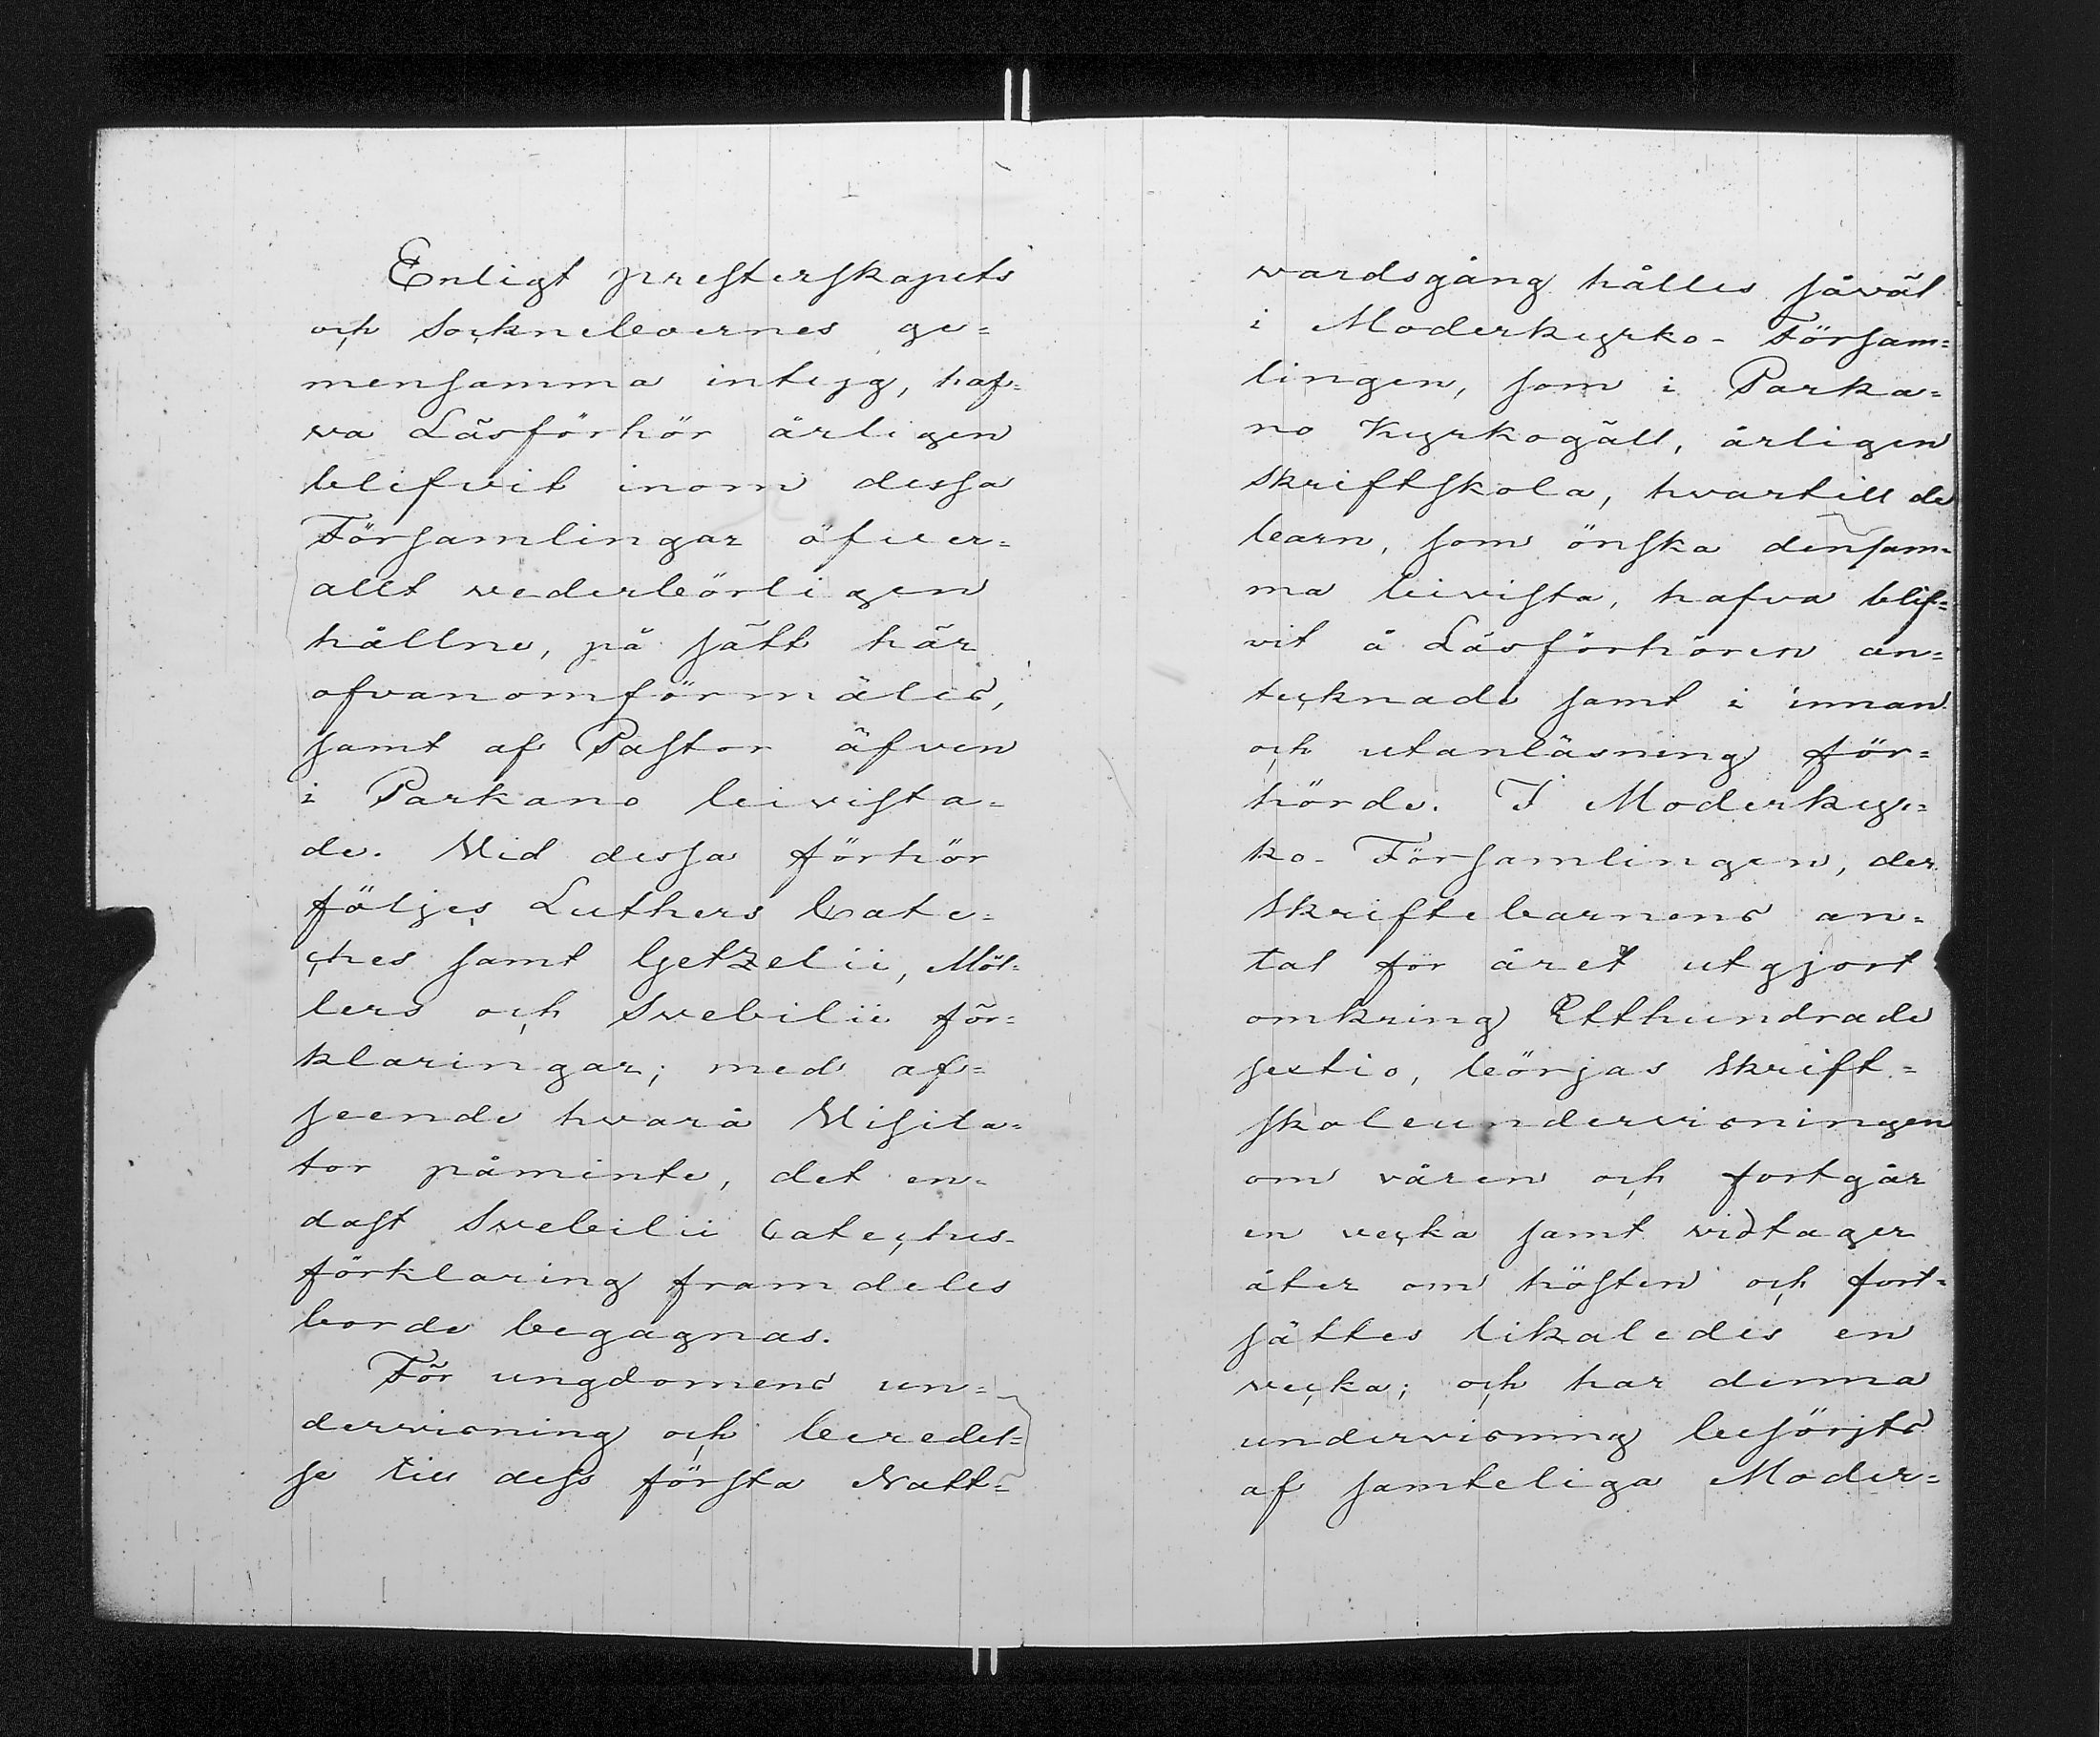 Enligt presterskapets
och Sockneboernes ge=
mensamma intyg, haf=
va Läsförhör årligen
blifvit inom dessa
Församlingar öfver=
allt vederbörligen
hållne, på sätt här
ofvanomförmäles,
samt af Pastor äfven
i Parkano bivista=
de. Vid dessa förhör
följes Luthers Cate=
ches samt Getzelii, Möl=
lers och Svebilii för=
klaringar; med af=
seende hvarå Visita=
tor påminte, det en=
dast Svebilii Cateches=
förklaring framdeles
borde begagnas.
För ungdomens un=
dervisning och beredel=
se till dess första Natt=
vardsgång hålles såväl
i Moderkyrko-Försam=
lingen, som i Parka=
no Kyrkogäll, årligen
Skriftskola, hvartill de
barn, som önska densam=
ma bivista, hafva blif=
vit å Läsförhören an=
tecknade samt i innan
och utanläsning för=
hörde. I Moderkyr=
ko-Församlingen, der
Skriftebarnens an=
tal för året utgjort
omkring Etthundrade
sextio, börjas Skrift=
skoleundervisningen
om våren och fortgår
en vecka samt vidtager
åter om hösten och fort=
sättes likaledes en
vecka; och har denna
undervisning besörjts
af samteliga Moder=